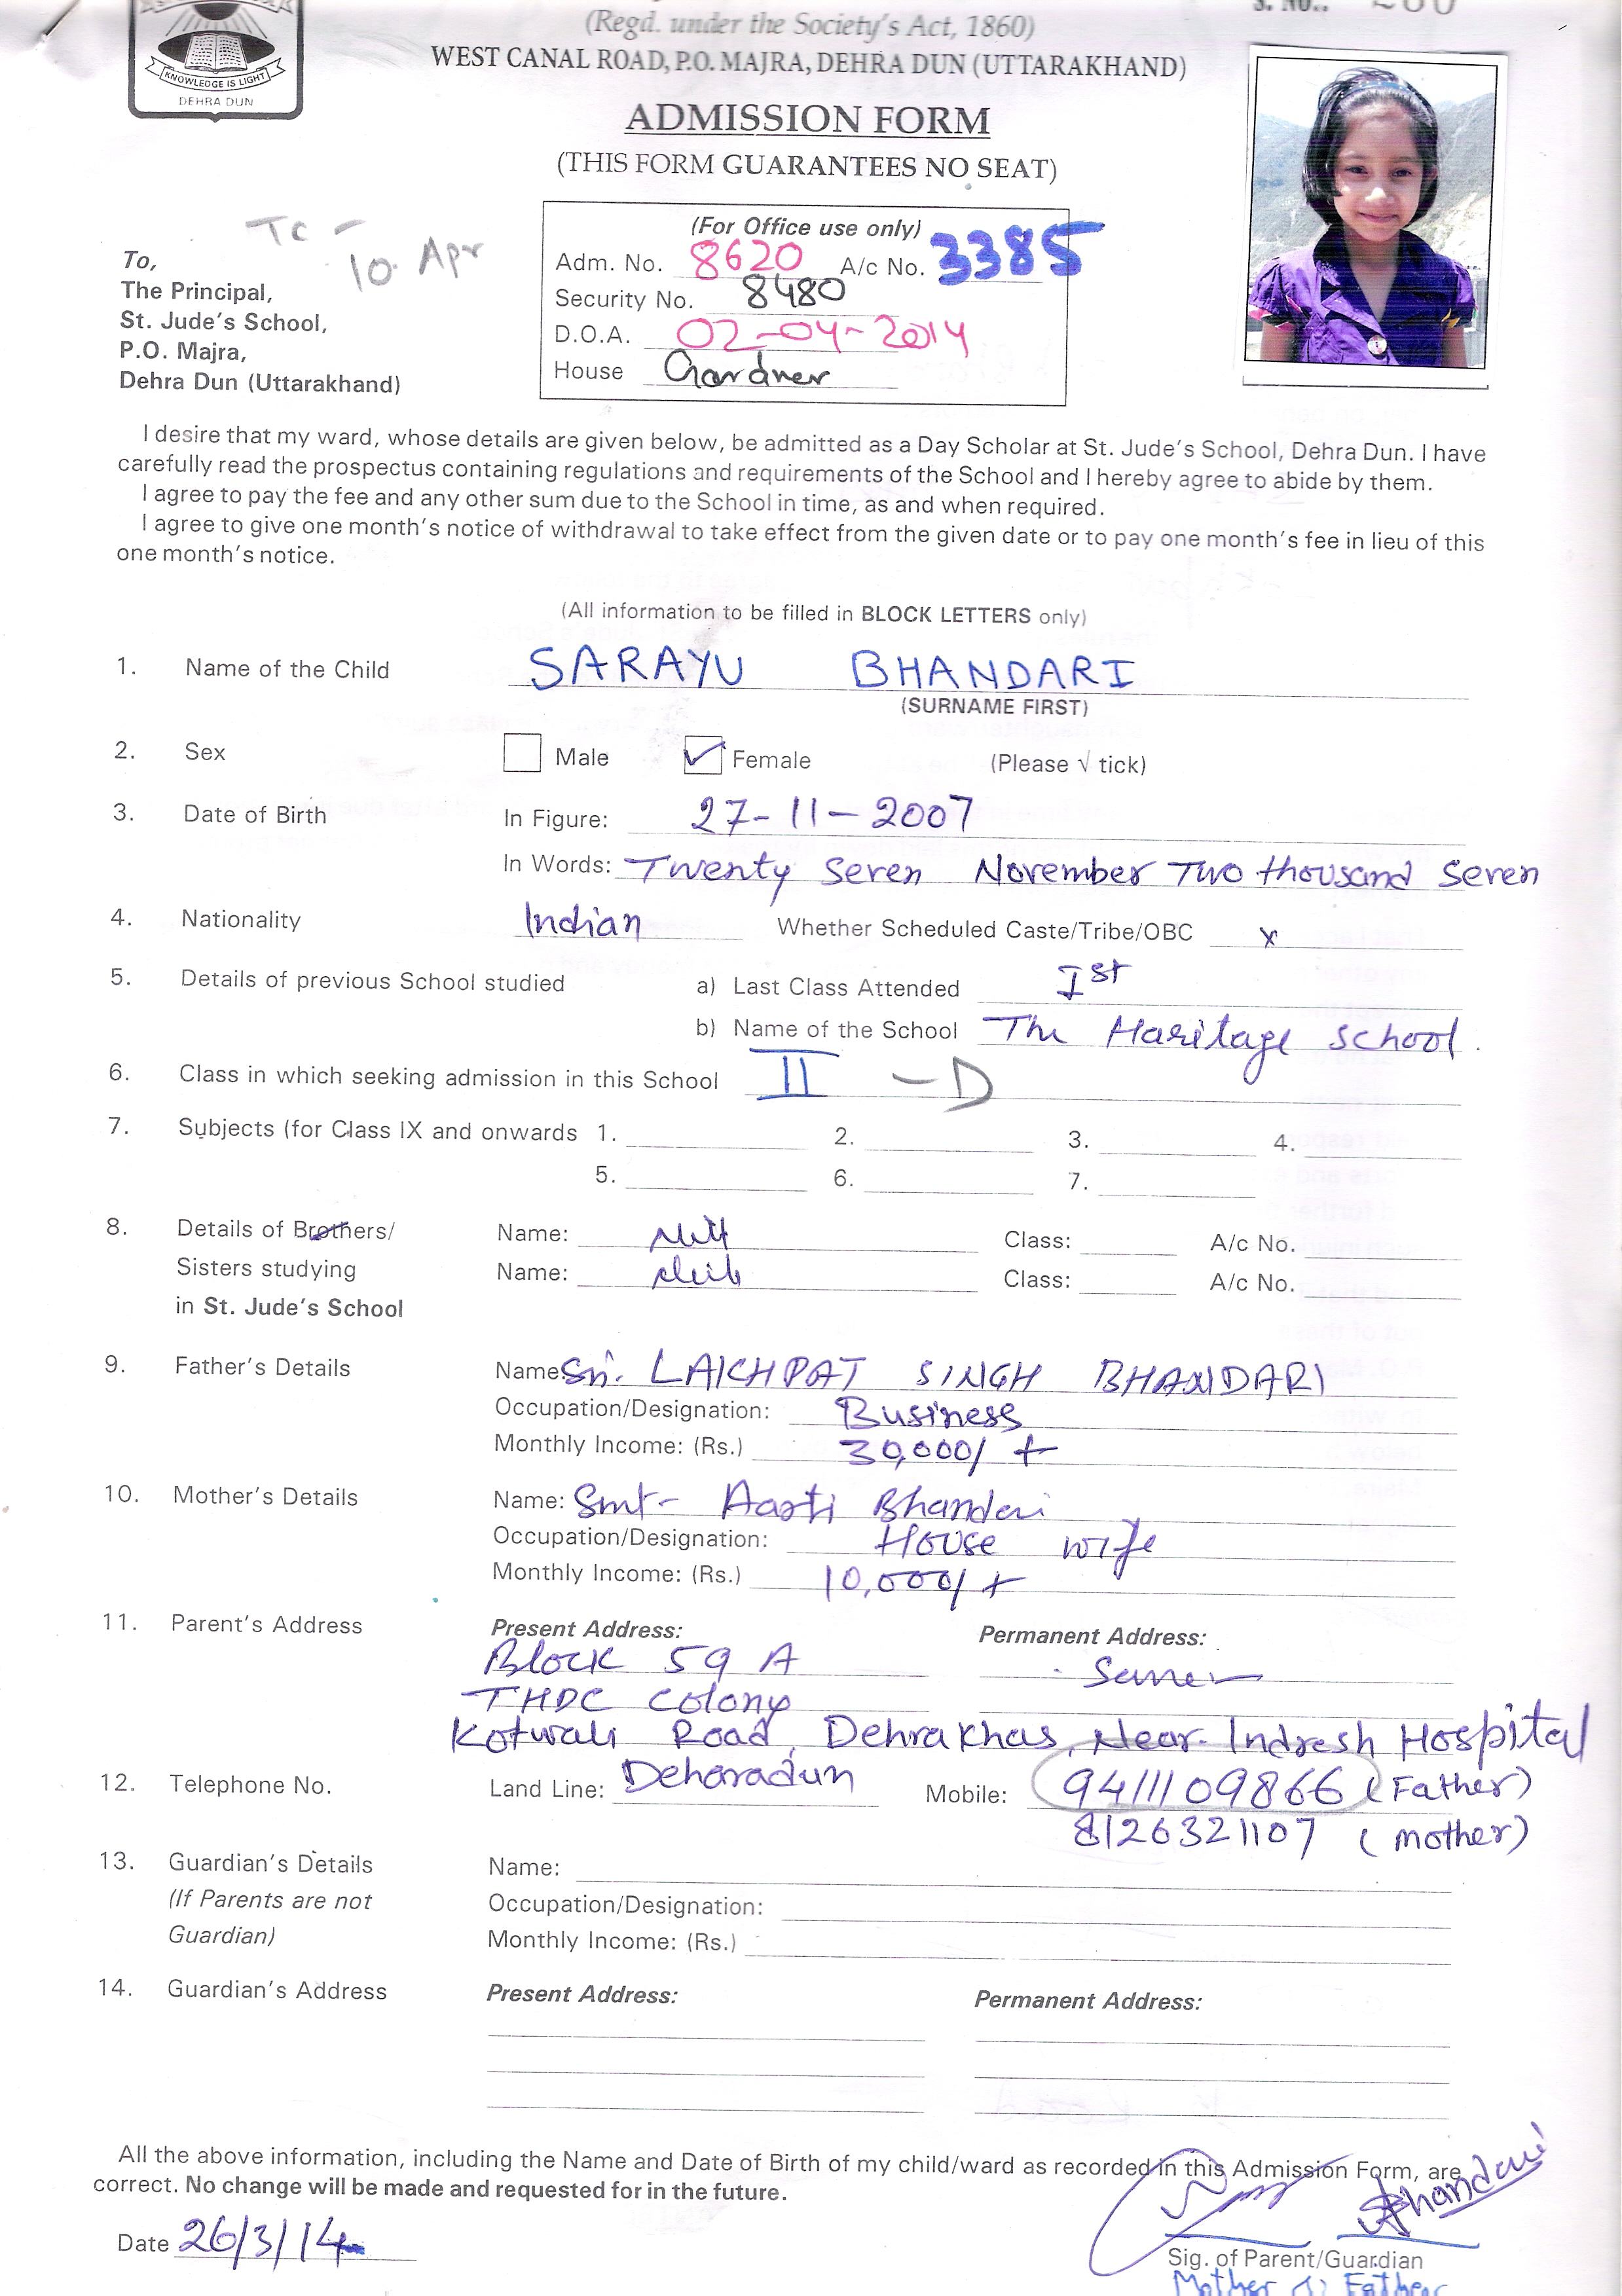 KNOWLEDGE IS LIGHT
DEHRA DUN
(Regd. under the Society's Act, 1860)
WEST CANAL ROAD, P.O. MAJRA, DEHRA DUN (UTTARAKHAND)
ADMISSION FORM
(THIS FORM GUARANTEES NO SEAT)
TC - 10 Apr
To,
The Principal,
St. Jude's School,
P.O. Majra,
Dehra Dun (Uttarakhand)
(For Office use only)
Adm. No. 8620 A/c No. 3385
Security No. 8480
D.O.A. 02-04-2014
House Gardner
I desire that my ward, whose details are given below, be admitted as a Day Scholar at St. Jude's School, Dehra Dun. I have
carefully read the prospectus containing regulations and requirements of the School and I hereby agree to abide by them.
I agree to pay the fee and any other sum due to the School in time, as and when required.
I agree to give one month's notice of withdrawal to take effect from the given date or to pay one month's fee in lieu of this
one month's notice.
(All information to be filled in BLOCK LETTERS only)
1. Name of the Child SARAYU BHANDARI
(SURNAME FIRST)
2. Sex Male Female (Please √ tick)
3. Date of Birth In Figure: 27-11-2007
In Words: Twenty Seven November Two thousand Seven
4. Nationality Indian Whether Scheduled Caste/Tribe/OBC x
5. Details of previous School studied a) Last Class Attended Ist
b) Name of the School The Haritage School.
6. Class in which seeking admission in this School II - D
7. Subjects (for Class IX and onwards 1. 2. 3. 4.
5. 6. 7.
8. Details of Brothers/ Name: Class: A/c No.
Sisters studying Name: Class: A/c No.
in St. Jude's School
9. Father's Details Name: Sri. LAKHPAT SINGH BHANDARI
Occupation/Designation: Business
Monthly Income: (Rs.) 30,000/ +
10. Mother's Details Name: Smt- Aarti Bhandari
Occupation/Designation: House wife
Monthly Income: (Rs.) 10,000/ +
11. Parent's Address Present Address: Permanent Address:
Block 59 A Same
THDC Colony
Kotwali Road, Dehrakhas, Near Indresh Hospital
12. Telephone No. Land Line: Deharadun Mobile: 9411109866 (Father)
8126321107 (mother)
13. Guardian's Details Name:
(If Parents are not Occupation/Designation:
Guardian) Monthly Income: (Rs.)
14. Guardian's Address Present Address: Permanent Address:
All the above information, including the Name and Date of Birth of my child/ward as recorded in this Admission Form, are
correct. No change will be made and requested for in the future.
Bhandari
Date 26/3/14
Sig. of Parent/Guardian
Mother Father